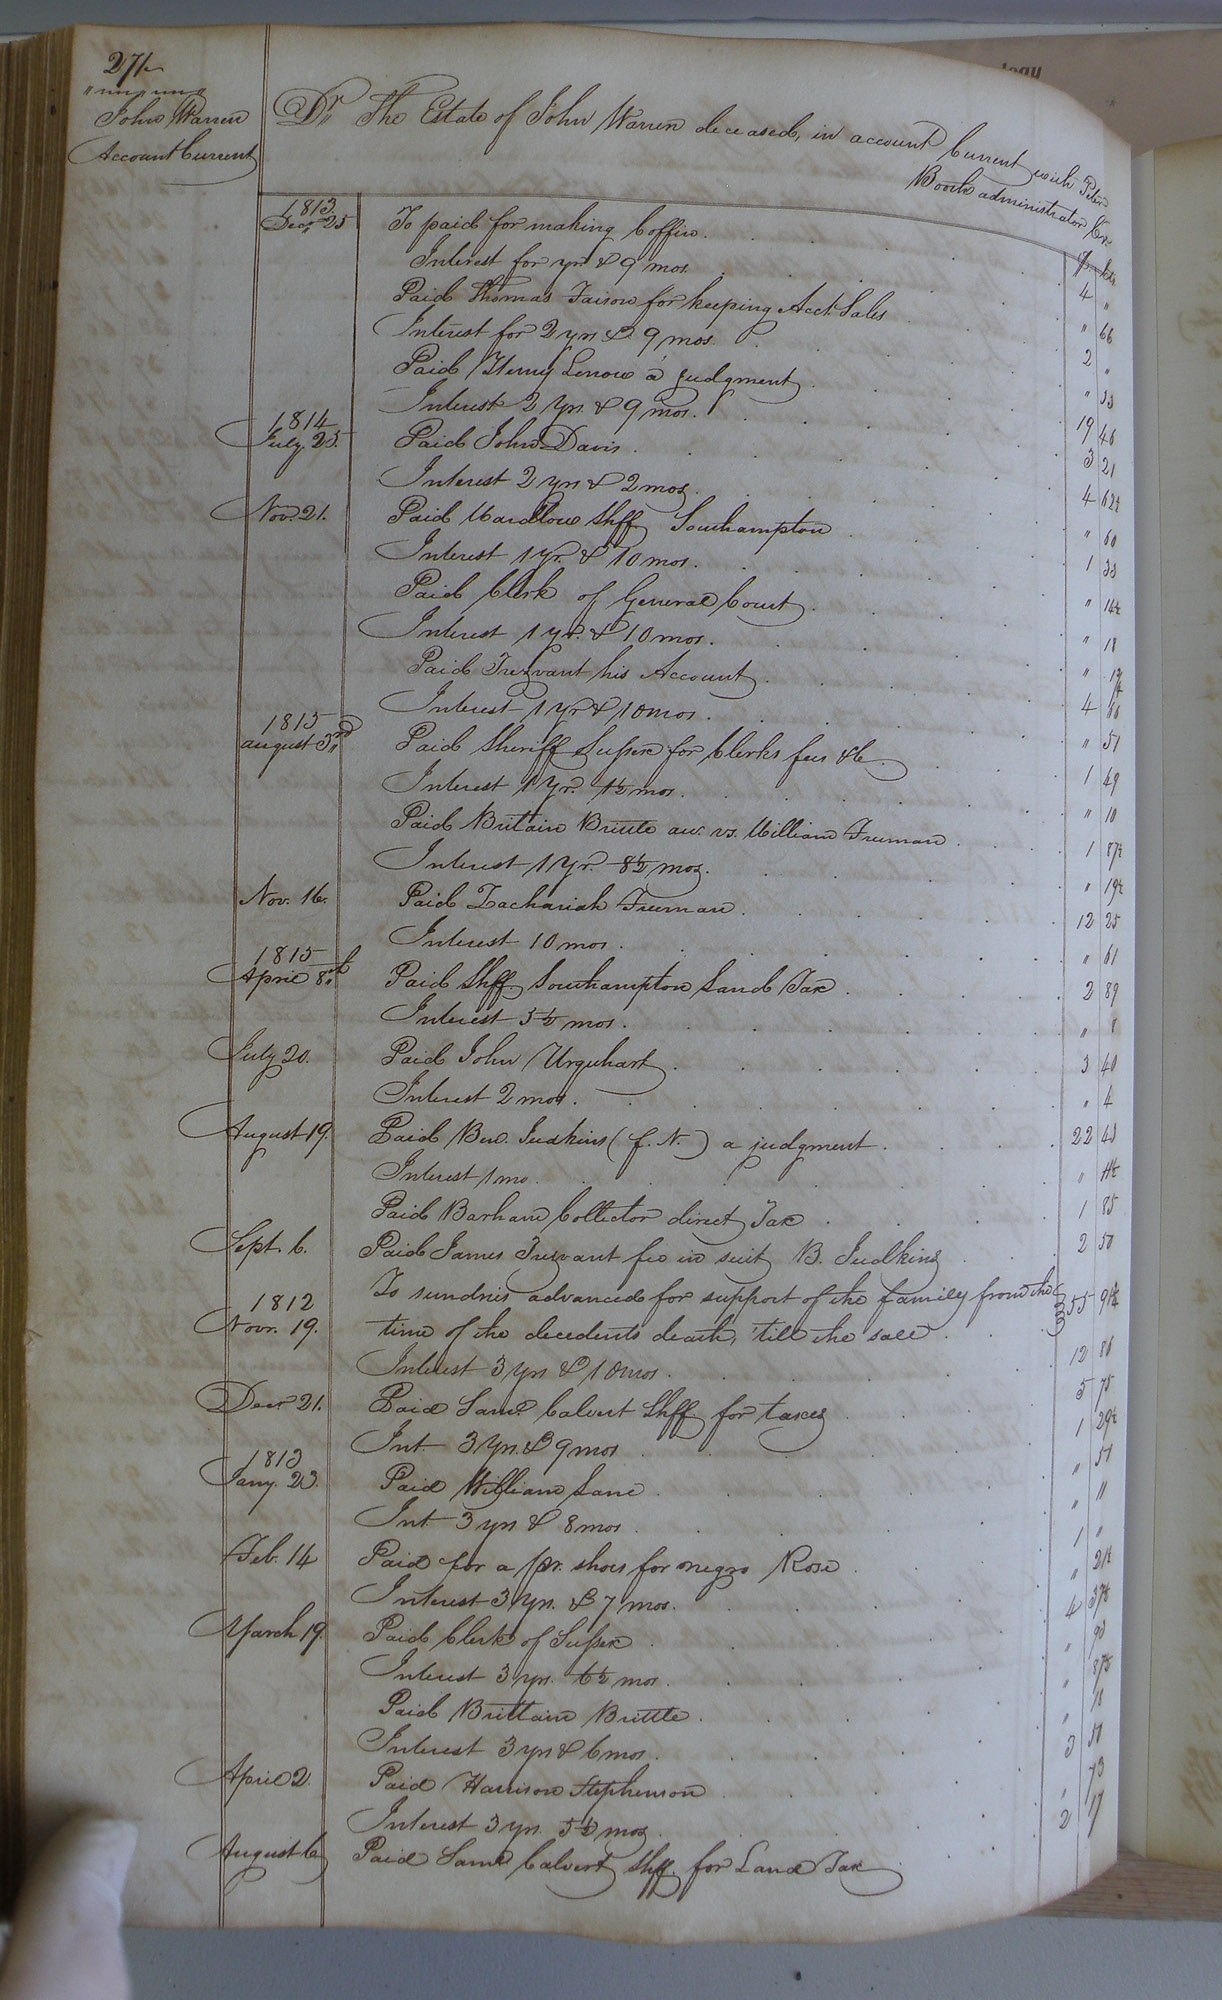 274
John Warren
Account Current
Dr. The Estate of John Warren deceased, in account Current with Peter
Booth administrator Cr.
1813
Decr. 25 To paid for making Coffin. 4 "
Interest for yr. & 9 mos. " 66
Paid Thomas Faison for keeping Acct. Sales 2 "
Interest for 2 yrs & 9 mos. " 33
Paid Henry Lenow a judgment 19 46
Interest 2 Yrs. & 9 mos. 3 21
1814
July 25. Paid John Davis. 4 62½
Interest 2 yrs & 2 mos. " 60
Nov. 21. Paid Shff Southampton 1 33
Interest 1 yr. & 10 mos. " 14½
Paid Clerk of General Court " 18
Interest 1 yr. & 10 mos. "
Paid Trezvant his Account 4 66
Interest 1 yr & 10 mos. " 51
1815
August 3rd Paid Sheriff Sussex for Clerks fees &c. 1 49
Interest 1 Yr. 1½ mos. " 10
Paid Britain Brittle vs. William Freeman 1 87½
Interest 1 Yr. 8½ mos. " 19½
Nov. 16. Paid Zachariah Freeman. 12 25
Interest 10 mos. " 61
1815
April 8th Paid Shff Southampton Land Tax 2 89
Interest 5½ mos. " 8
July 20. Paid John Urquhart 3 40
Interest 2 mos. " 4
August 19. Paid Ben. Judkins (f. N.) a judgment 22 43
Interest 1 mo. " 11½
Paid Barham Collector direct Tax 1 85
Sept. 6. Paid James Trezvant fee in suit B. Judkins 2 50
To sundries advanced for support of the family from the
1812
Novr. 19. time of the decedents death, 'till the sale 55 91½
Interest 3 yrs & 10 mos. 12 86
Decr 21. Paid Saml. Calvert Shff for taxes 5 75
Int. 3 Yrs. & 9 mos 1 29½
1813
Jany. 23. Paid William Lane " 51
Int. 3 yrs & 8 mos. " 11
Feb. 14 Paid for a pr. shoes for negro Rose 1 "
Interest 3 Yrs. & 7 mos. " 21½
March 19. Paid Clerk of Sussex 4 37½
Interest 3 yrs. 6½ mos. " 93
Paid Brittain Brittle. " 87½
Interest 3 yrs & 6 mos. " 18
April 2. Paid Harrison Stephenson 3 50
Interest 3 yrs. 5½ mos. " 73
August 6 Paid Saml Calvert Shff. for Land Tax 2 17